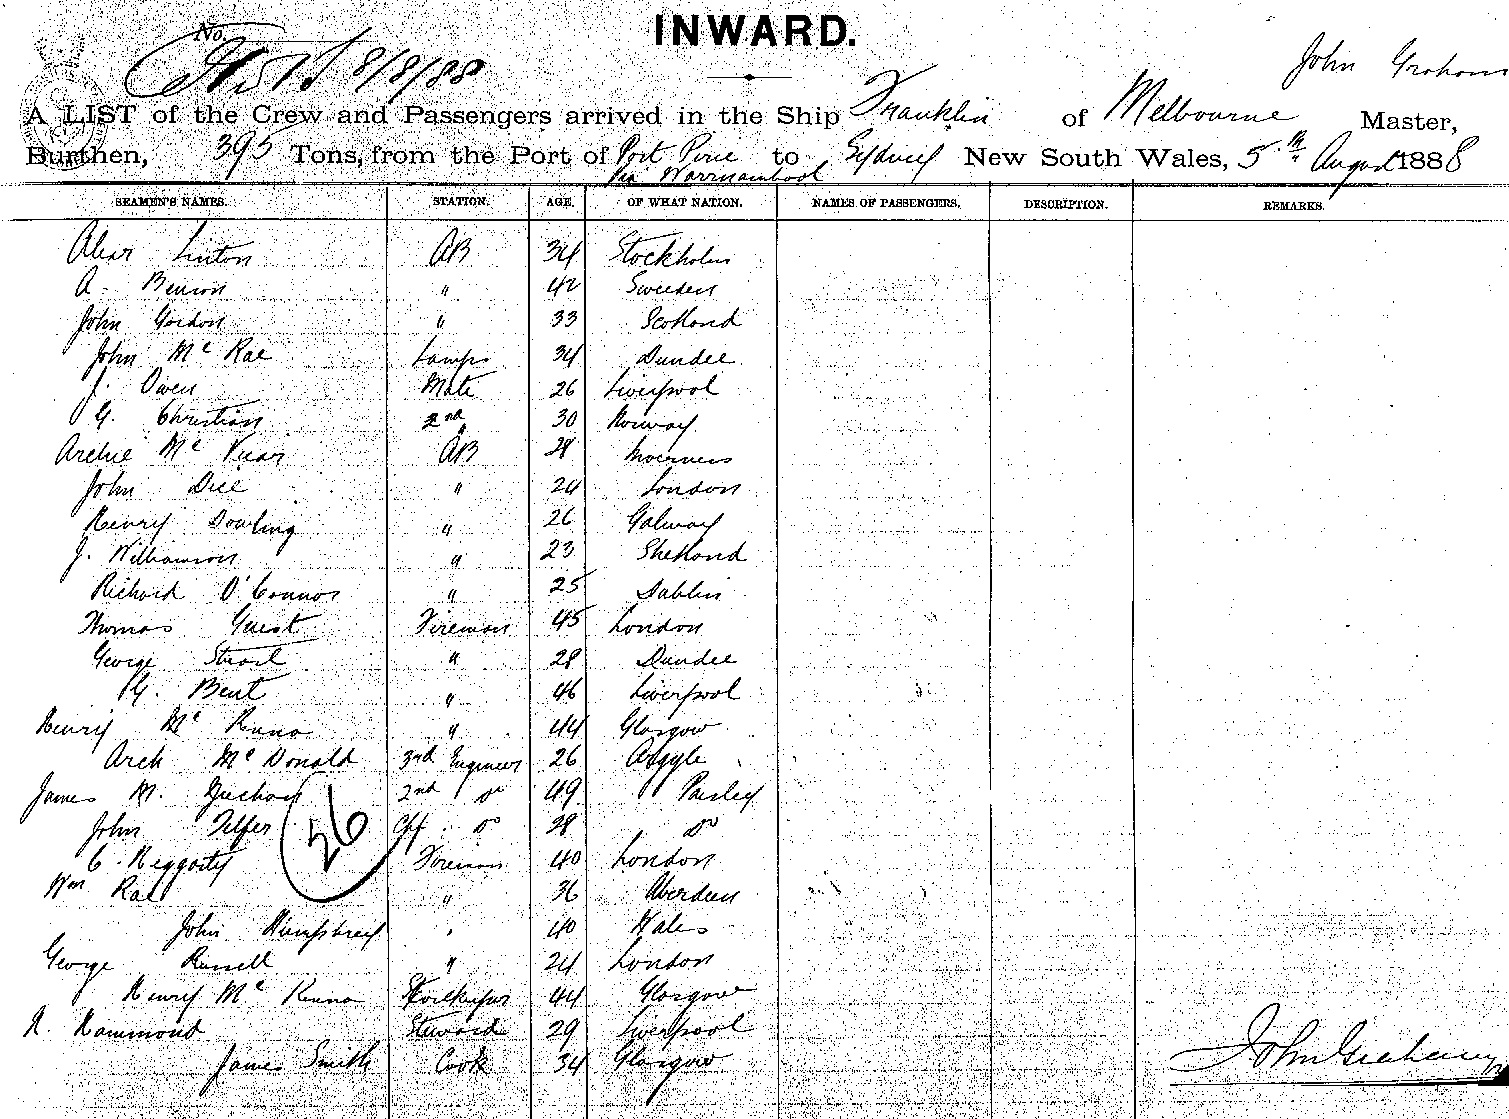 INWARD.
No.
8/8/88
John Graham
A LIST of the Crew and Passengers arrived in the Ship Franklin of Melbourne Master,
Burthen, 395 Tons, from the Port of Port Pirie to Sydney New South Wales, 5th August 1888
Via Warrnambool
SEAMEN'S NAMES. STATION. AGE. OF WHAT NATION. NAMES OF PASSENGERS. DESCRIPTION. REMARKS.
Linton AB 34 Stockholm
A. Benson " 42 Sweeden
John Gordon " 33 Scotland
John Mc Rae Lamps 34 Dundee
J. Owen Mate 26 Liverpool
G. Christian 2nd " 30 Norway
Archie Mc Vicar AB 28 Inverness
John Dee " 24 London
Henry Dowling " 26 Galway
J. Williamson " 23 Shetland
Richard O'Connor " 25 Dublin
Thomas Guest Fireman 45 London
George Stuart " 28 Dundee
G. Bent " 46 Liverpool
Henry Mc " 44 Glasgow
Arch Mc Donald 3rd Engineer 26 Argyle
James M. 2nd Do 49 Paisley
John Telfer Chf Do 28 Do
26
C. Heggarty Fireman 40 London
Wm Rae " 36 Aberdeen
John Humphrey " 40 Wales
George Russell " 24 London
Henry Mc Storekeeper 44 Glasgow
H. Hammond Steward 29 Liverpool
James Smith Cook 34 Glasgow
John Graham